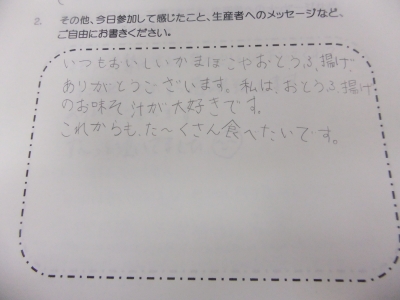 2. その他、今日参加して感じたこと、生産者へのメッセージなど、
ご自由にお書きください。
いつもおいしいかまぼこやおとうふ、揚げ
ありがとうございます。私は、おとうふ、揚げ
のお味そ汁が大好きです。
これからも、た〜くさん食べたいです。